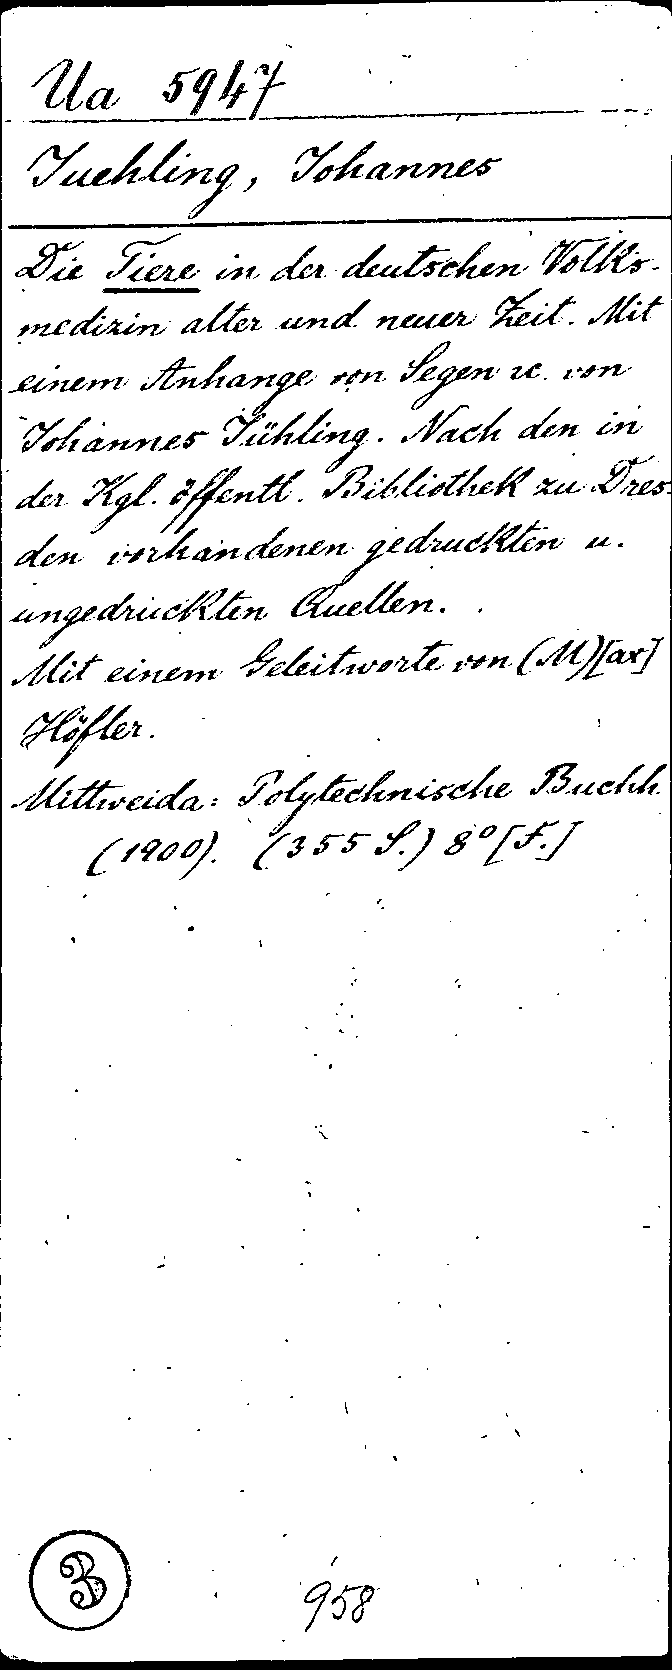 Ua 5947
Juehling, Johannes
Die Tiere in der deutschen Volks-
medizin alter und neuer Zeit. Mit
einem Anhange von Segen ꝛc. von
Johannes Jühling. Nach den in
der Kgl. öffentl. Bibliothek zu Dres-
den vorhandenen gedruckten u.
ungedruckten Quellen.
Mit einem Geleitworte von (M)[ax]
Höfler.
Mittweida: Polytechnische Buchh.
(1900). (355 S.) 8° [F.]
3
958